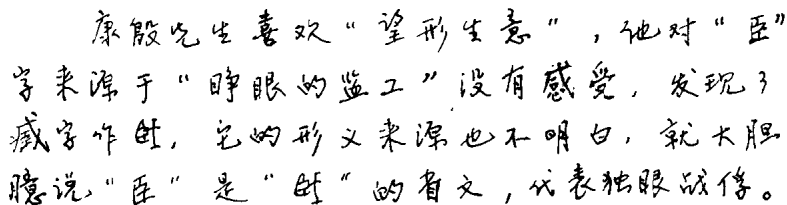 康殷先生喜欢“望形生意”，他对“臣”
字来源于“睁眼的监工”没有感受，发现了
臧字作“㘸”，它的形义来源也不明白，就大胆
臆说“臣”是“”的省文，代表独眼战俘。